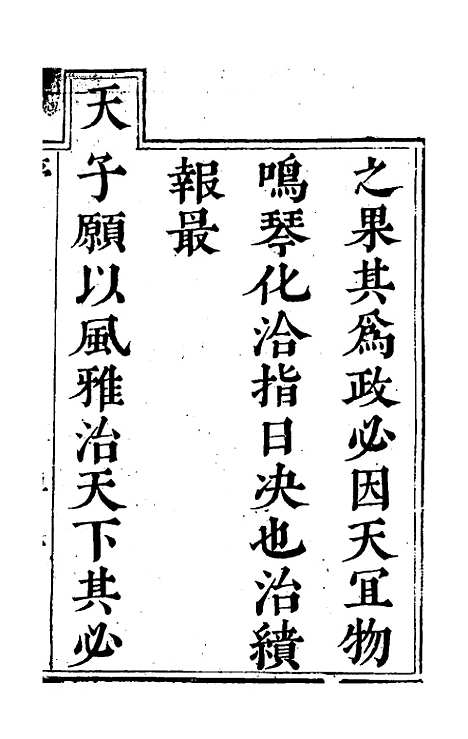 之果其爲政必因天宜物
鳴琴化洽指日决也治績
報最
天子願以風雅治天下其必